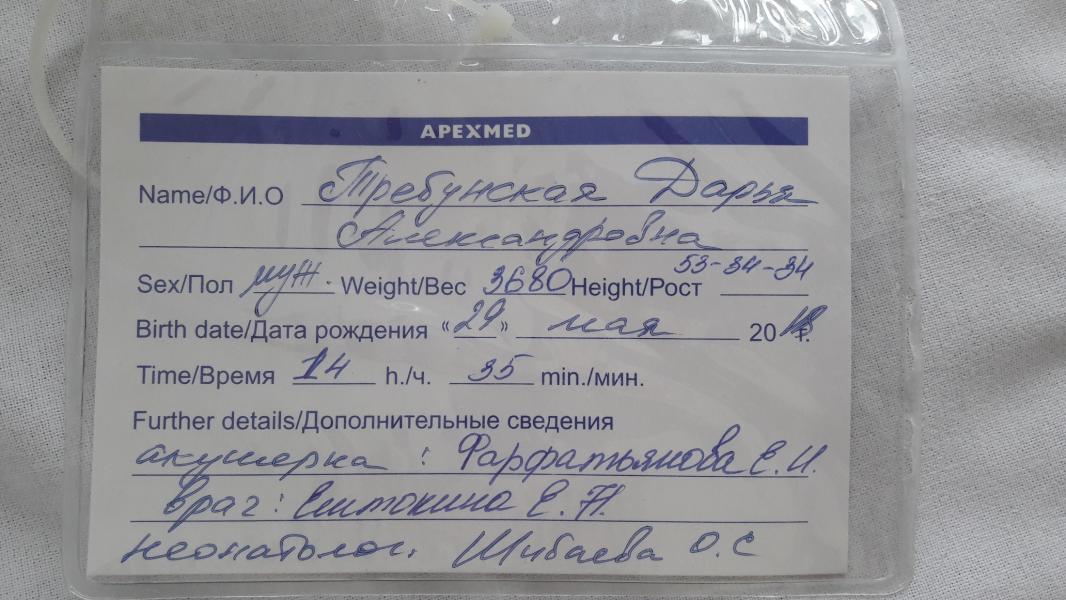 APEXMED
Name/Ф.И.О Требунская Дарья
Александровна
53-34-34
Sex/Пол муж. Weight/Вес 3680 Height/Рост
Birth date/Дата рождения «29» мая 2018 г.
Time/Время 14 h./ч. 35 min./мин.
Further details/Дополнительные сведения
акушерка : Фарфатьянова Е.И.
врач: Е.Н.
неонатолог. Шибаева О.С